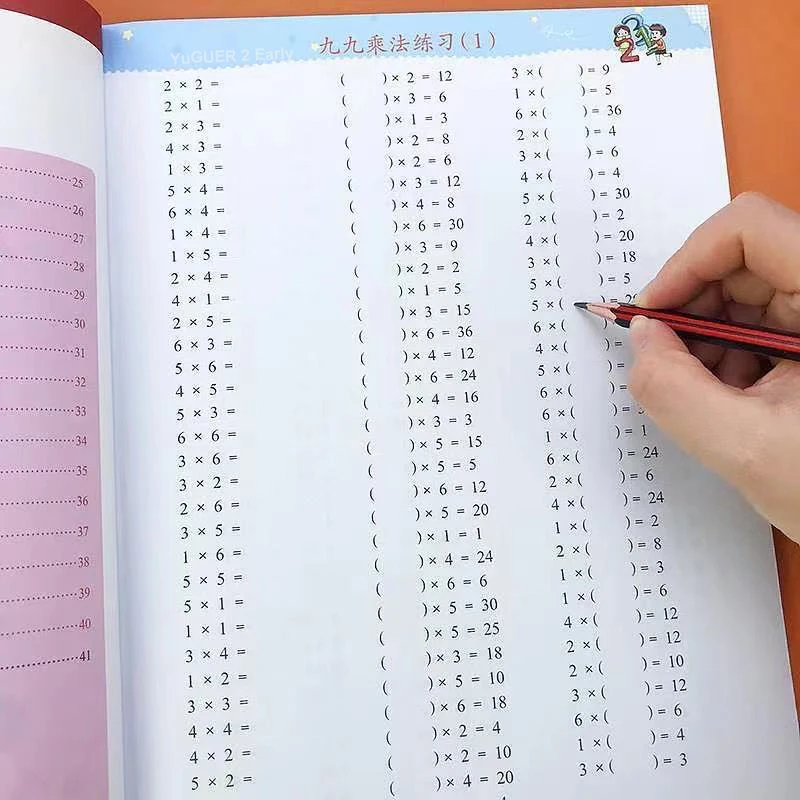 25
26
27
28
29
30
31
32
33
34
35
36
37
38
39
40
41
YuGUER 2 Early
九九乘法练习(1)
2 × 2 =
2 × 1 =
2 × 3 =
4 × 3 =
1 × 3 =
5 × 4 =
6 × 4 =
1 × 4 =
1 × 5 =
2 × 4 =
4 × 1 =
2 × 5 =
6 × 3 =
5 × 6 =
4 × 5 =
5 × 3 =
6 × 6 =
3 × 6 =
3 × 2 =
2 × 6 =
3 × 5 =
1 × 6 =
5 × 5 =
5 × 1 =
1 × 1 =
3 × 4 =
1 × 2 =
3 × 3 =
4 × 4 =
4 × 2 =
5 × 2 =
( )× 2 = 12
( )× 3 = 6
( )× 1 = 3
( )× 2 = 8
( )× 2 = 6
( )× 3 = 12
( )× 4 = 8
( )× 6 = 30
( )× 3 = 9
( )× 2 = 2
( )× 1 = 5
( )× 3 = 15
( )× 6 = 36
( )× 4 = 12
( )× 6 = 24
( )× 4 = 16
( )× 3 = 3
( )× 5 = 15
( )× 5 = 5
( )× 6 = 12
( )× 5 = 20
( )× 1 = 1
( )× 4 = 24
( )× 6 = 6
( )× 5 = 30
( )× 5 = 25
( )× 3 = 18
( )× 5 = 10
( )× 6 = 18
( )× 2 = 4
( )× 2 = 10
( )× 4 = 20
3 ×( )= 9
1 ×( )= 5
6 ×( )= 36
2 ×( )= 4
3 ×( )= 6
4 ×( )= 4
5 ×( )= 30
2 ×( )= 2
4 ×( )= 20
3 ×( )= 18
5 ×( )= 5
5 ×( )=
6 ×(
4 ×( )=
5 ×( )=
6 ×( )=
6 ×( )=
1 ×( )= 1
6 ×( )= 24
2 ×( )= 6
4 ×( )= 24
1 ×( )= 2
2 ×( )= 8
1 ×( )= 3
1 ×( )= 6
4 ×( )= 12
2 ×( )= 12
2 ×( )= 10
3 ×( )= 12
6 ×( )= 6
1 ×( )= 4
3 ×( )= 3